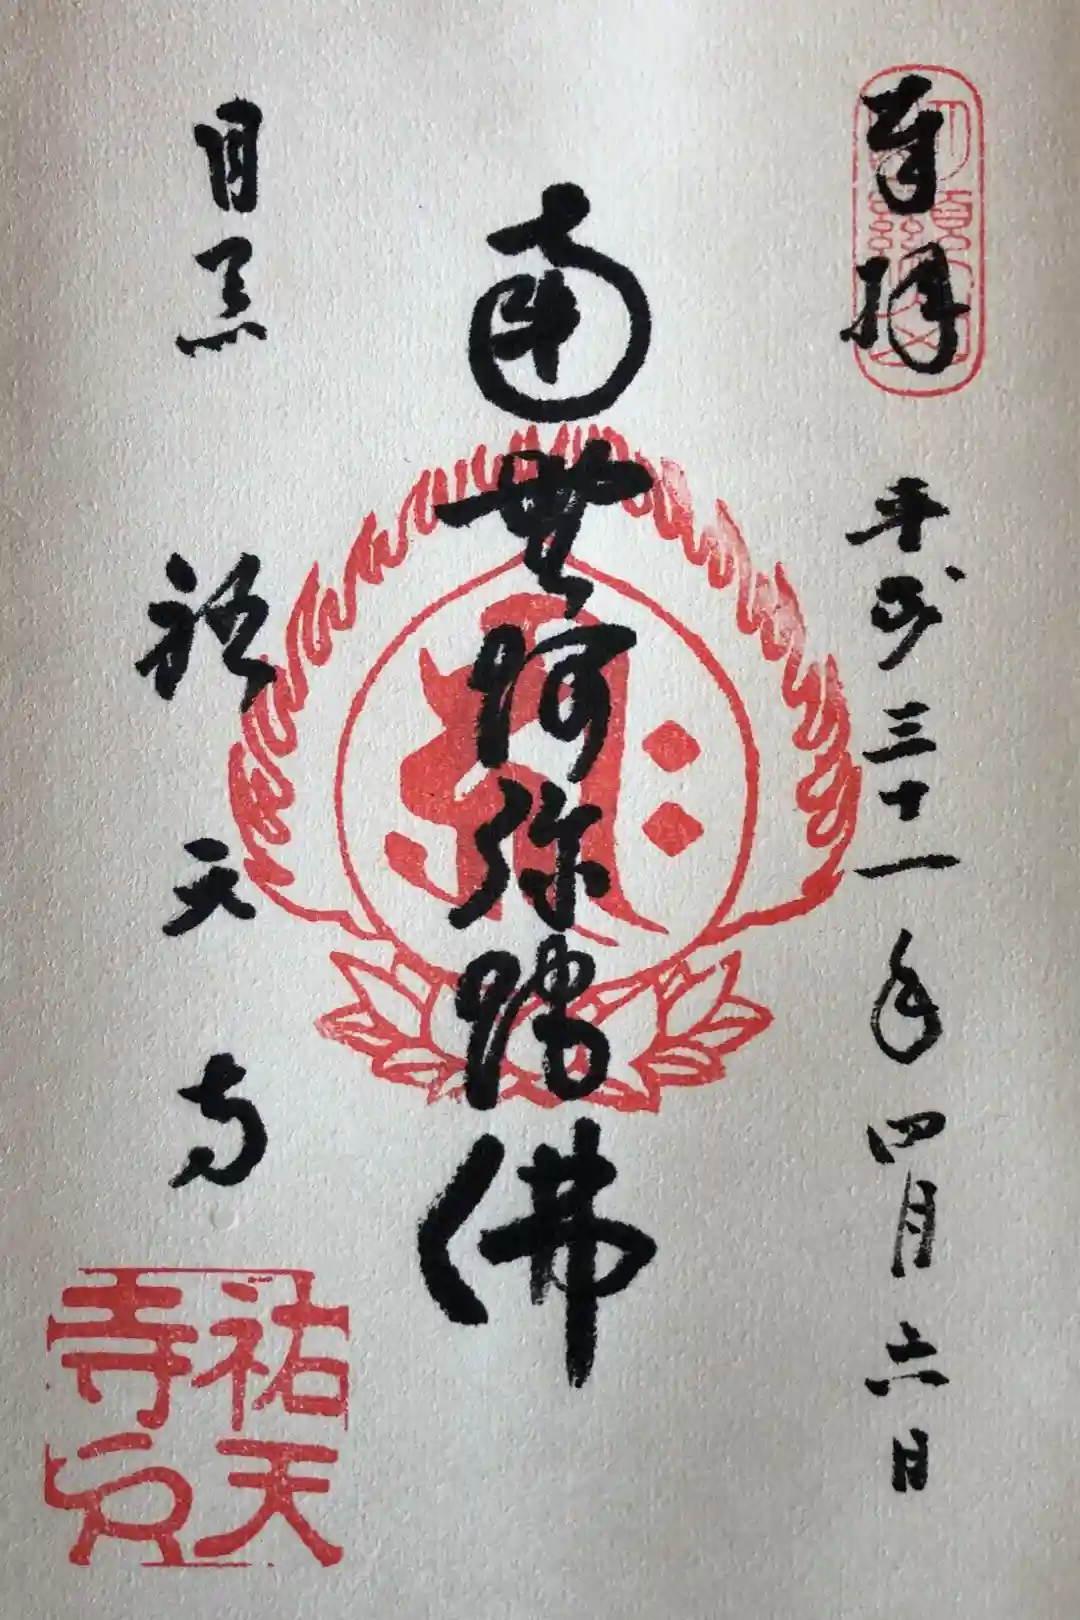 奉拝
平成三十一年四月六日
南無阿弥陀佛
目黒
祐天寺
祐天
寺印